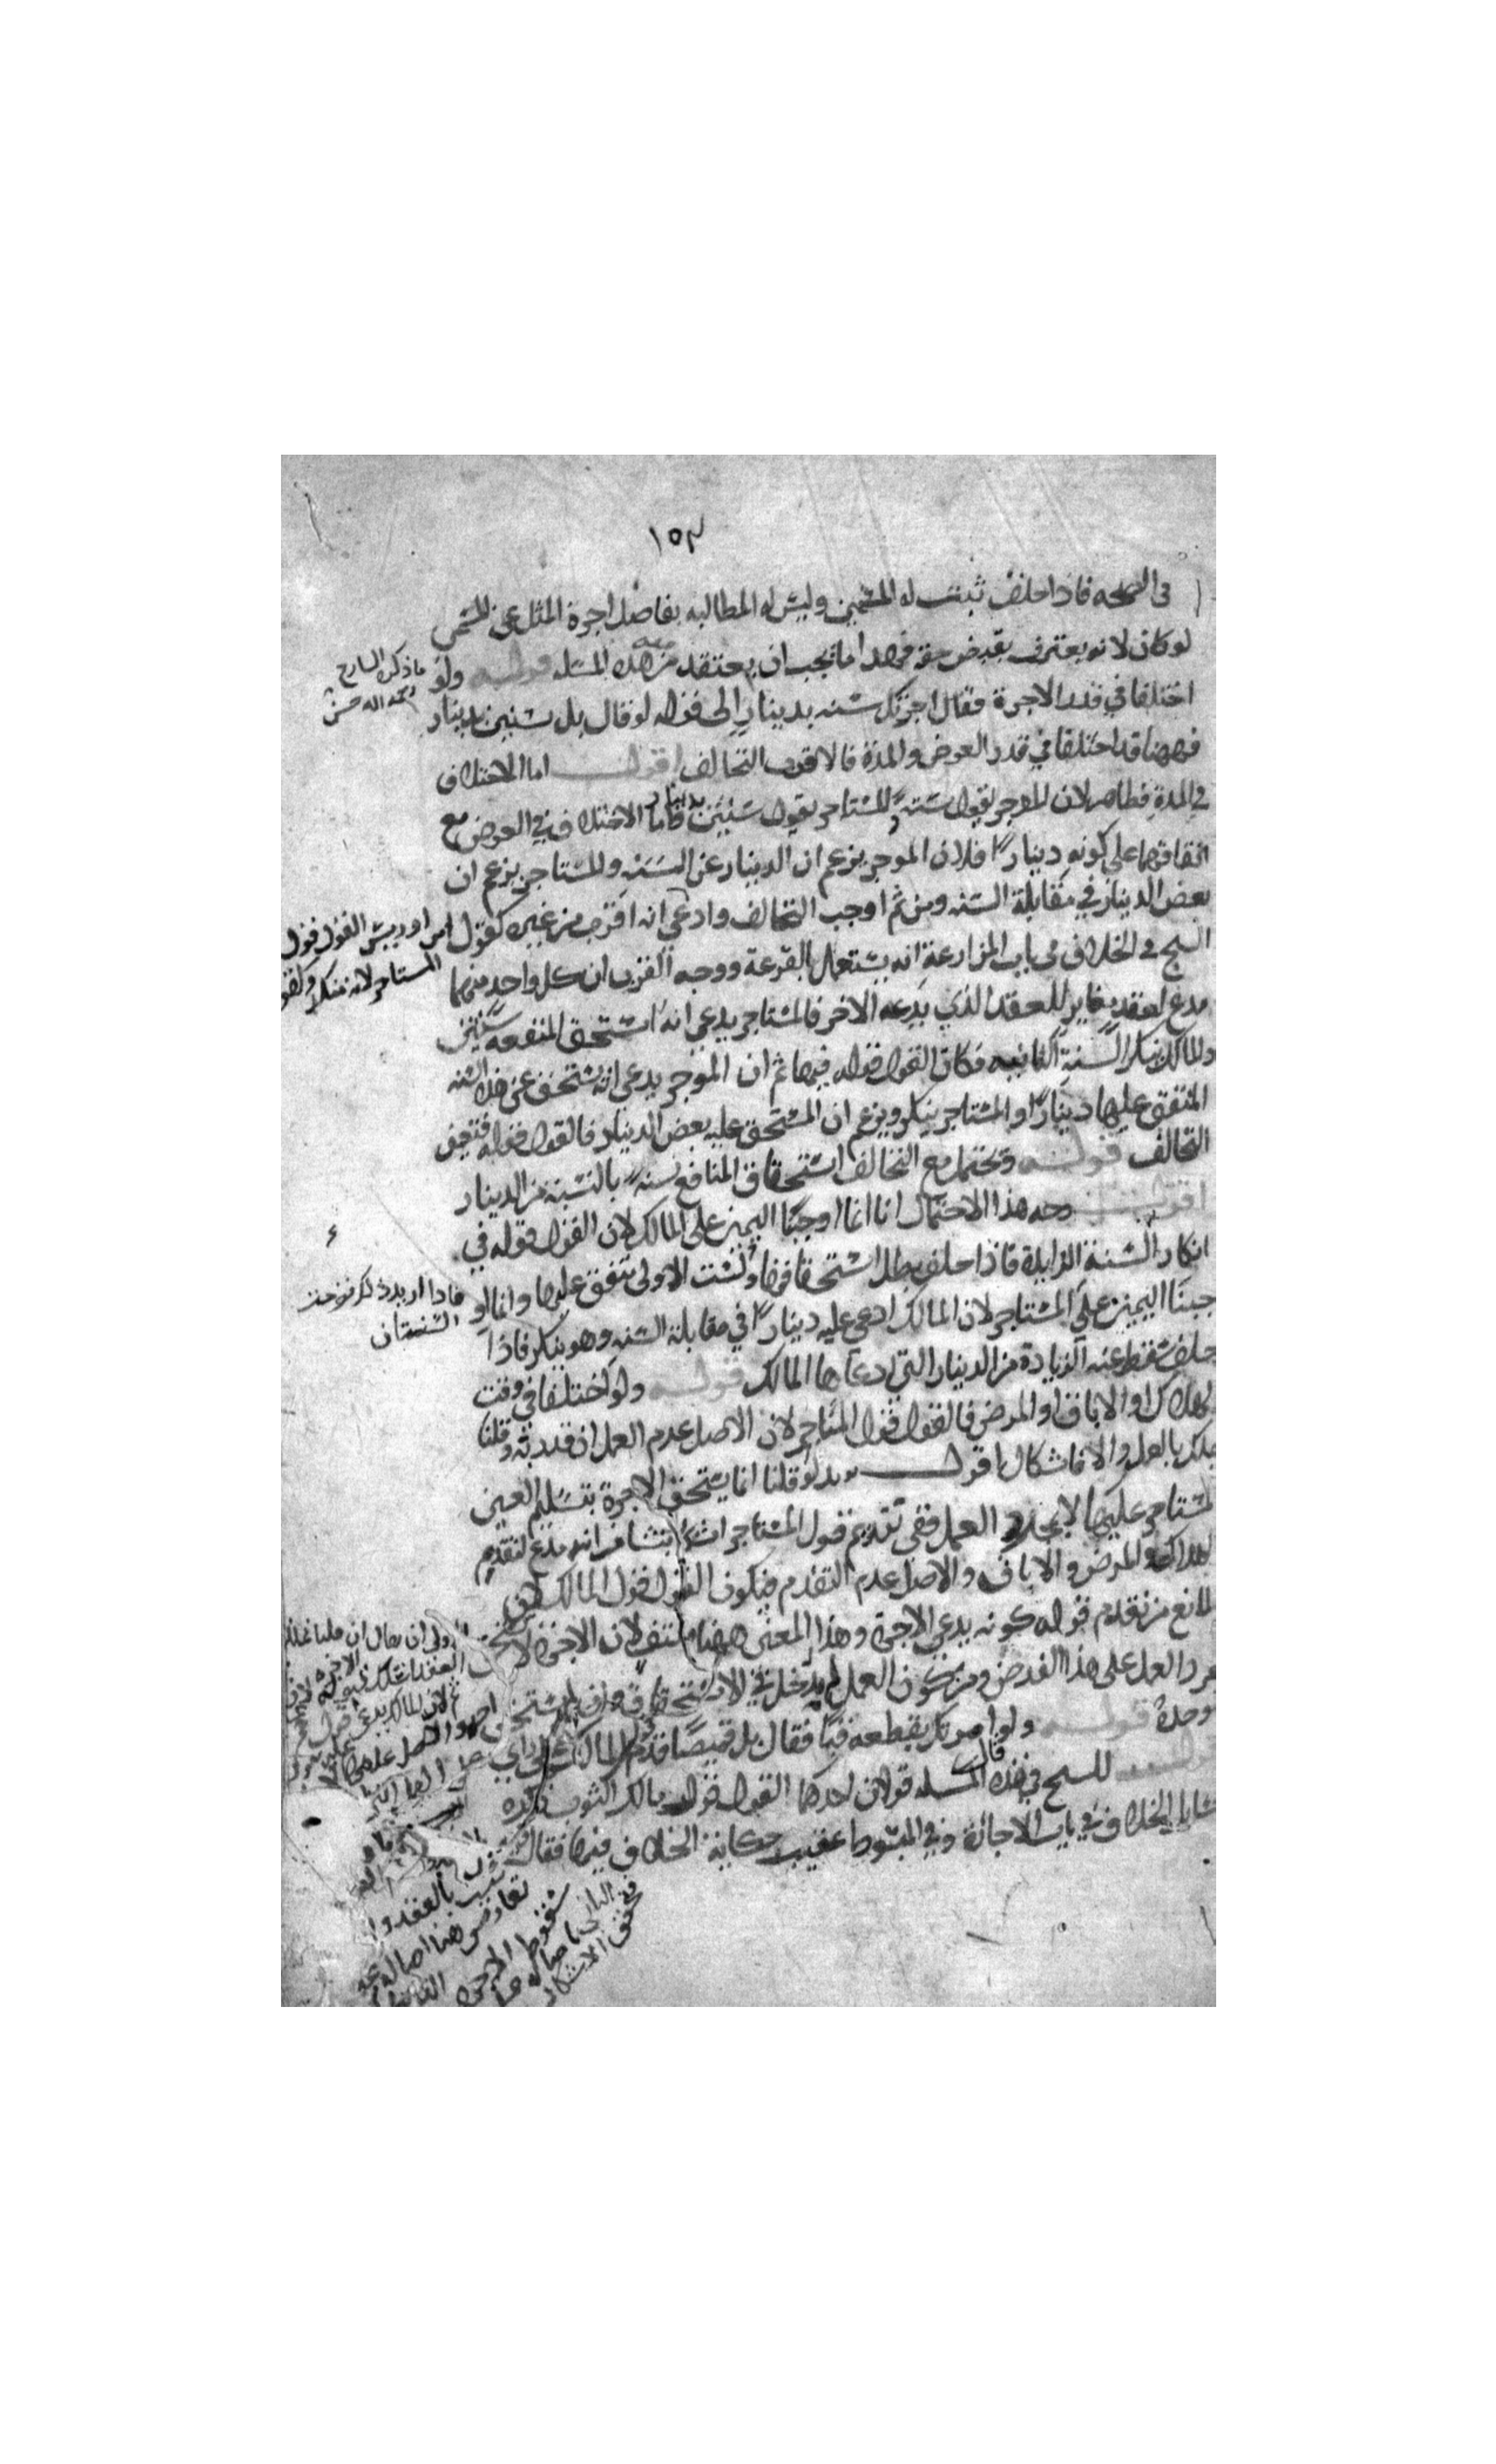 ١٥٣
فى الصحه فاذا حلف ثبتت له المسمى وليس له المطالبه بفاضل اجرة المثل عن المسمى
لو كان لانه يعترف بقبض حقه فهذا ما يجب ان يعتقد من هذه المسله قوله ولو
اختلفا في قدر الاجرة فقال اجرتك سنه بدينار الى قوله لو قال بل سنتين بدينار
فههنا قد اختلفا في قدر العوض والمدة فالاقرب التحالف اقول اما الاختلاف
في المدة فظاهر لان الموجر يقول سنة والمستاجر يقول سنتين بدينار واما الاختلاف في العوض مع
اتفاقهما على كونه دينارا فلان الموجر يزعم ان الدينار عن السنه والمستاجر يزعم ان
بعض الدينار في مقابلة السنه ومن ثم اوجب التحالف وادعى انه اقرب من غيره كقول ابن ادريس القول قول
المستاجر لانه منكر وكقول
الشيخ في الخلاف في باب المزارعة انه يستعمل القرعة ووجه القرب ان كل واحد منهما
مدع لعقد يغاير للعقد الذي يدعيه الاخر فالمستاجر يدعي انه استحق المنفعه سنتين
والمالك ينكر السنة الثانيه فكان القول قوله فيها ثم ان الموجر يدعى انه يستحق عن هذه السنه
المتفق عليها دينارا والمستاجر ينكر ويزعم ان المستحق عليه بعض الدينار فالقول قوله فتعين
التحالف قوله ويحتمل مع التحالف استحقاق المنافع سنة بالنسبة من الدينار
اقول وجه هذا الاحتمال انا انما اوجبنا اليمين على المالك لان القول قوله في
انكار السنة الزايدة فاذا حلف بطل استحقاقها والسنة الاولى متفق عليها وانما او
جبنا اليمين على المستاجر لان المالك ادعى عليه دينارا في مقابلة السنه وهو ينكر فاذا
حلف سقط عنه الزيادة من الدينار التي ادعاها المالك قوله ولو اختلفا في وقت
الهلاك او الاباق او المرض فالقول قول المستاجر لان الاصل عدم العمل ان قدر به وقلنا
يملك بالعمل والا فاشكال اقول يريد لو قلنا انما يستحق الاجرة بتسليم العين
المستاجر عليها لا بمجرد العمل ففي تقديم قول المستاجر اشكال ينشا من انه مدع لتقدم
الهلاك والمرض والاباق والاصل عدم التقدم فيكون القول قول المالك لان
المانع من تقدم قوله كونه يدعي الاجرة وهذا المعنى ههنا منتف لان الاجرة لا تستحق
بمجرد العمل على هذا الفرض ومن كون العمل له مدخل في الاستحقاق وان لم يستحق
وحده قوله ولو قال امرتك بقطعه قبا فقال بل قميصا قدم قول المالك على راي
اقول للشيخ في هذه المسله قولان احدهما القول قول مالك الثوب ذكره
مسايل الخلاف في باب الاجارة وفي المبسوط عقيب حكاية الخلاف فيها فقال
ما ذكره الشارح
رحمه الله حسن
فاذا اريد ذلك
السنتان
ثبت بالعقد
تعارض هنا اصالة
سقوط الاجرة